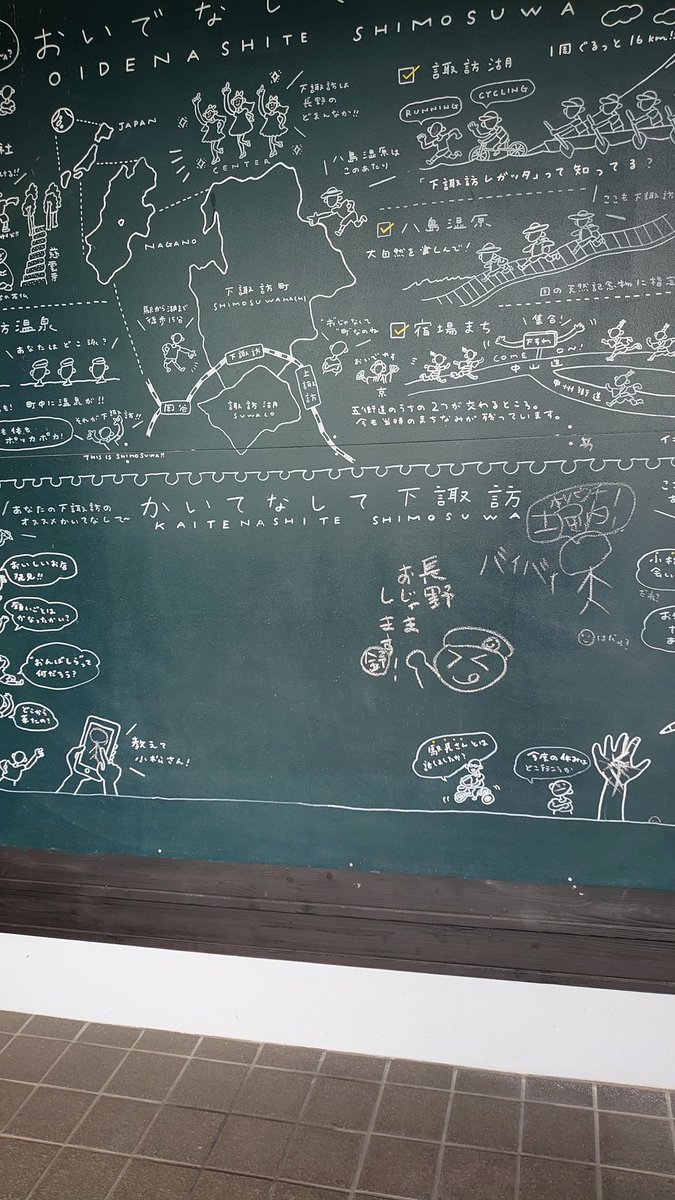 おいでなして
OIDENASHITE SHIMOSUWA
JAPAN
NAGANO
下諏訪は
長野の
どまんなか!!
CENTER
八島湿原は
このあたり
下諏訪町
SHIMOSUWAMACHI
駅から湖まで
徒歩15分
下諏訪
上諏訪
岡谷
諏訪湖
SUWACO
諏訪湖
1周ぐるっと16km!!
RUNNING
CYCLING
「下諏訪レガッタ」って知ってる?
八島湿原
ここも下諏訪
大自然を楽しんで!
国の天然記念物に指定
宿場まち
集合!
下すわ
COME ON!
中山道
甲州街道
おいでやす
京
五街道のうちの2つが交わるところ。
今も当時のまちなみが残っています。
社
方温泉
あなたはどこ派?
町中に温泉が!!
ポッカポカ!
それが下諏訪!!
THIS IS SHIMOSUWA!!
かいてなして下諏訪
KAITENASHITE SHIMOSUWA
あなたの下諏訪の
オススメかいてなして〜
おいしいお店
発見!!
願いごとは
かなったかい?
おんばしらって
何だろう?
どこから
来たの?
教えて
小松さん!
長野
おじゃま
します!
バイバイ
駅長さんとは
話しましたか?
今度の休みは
どこ行こうか